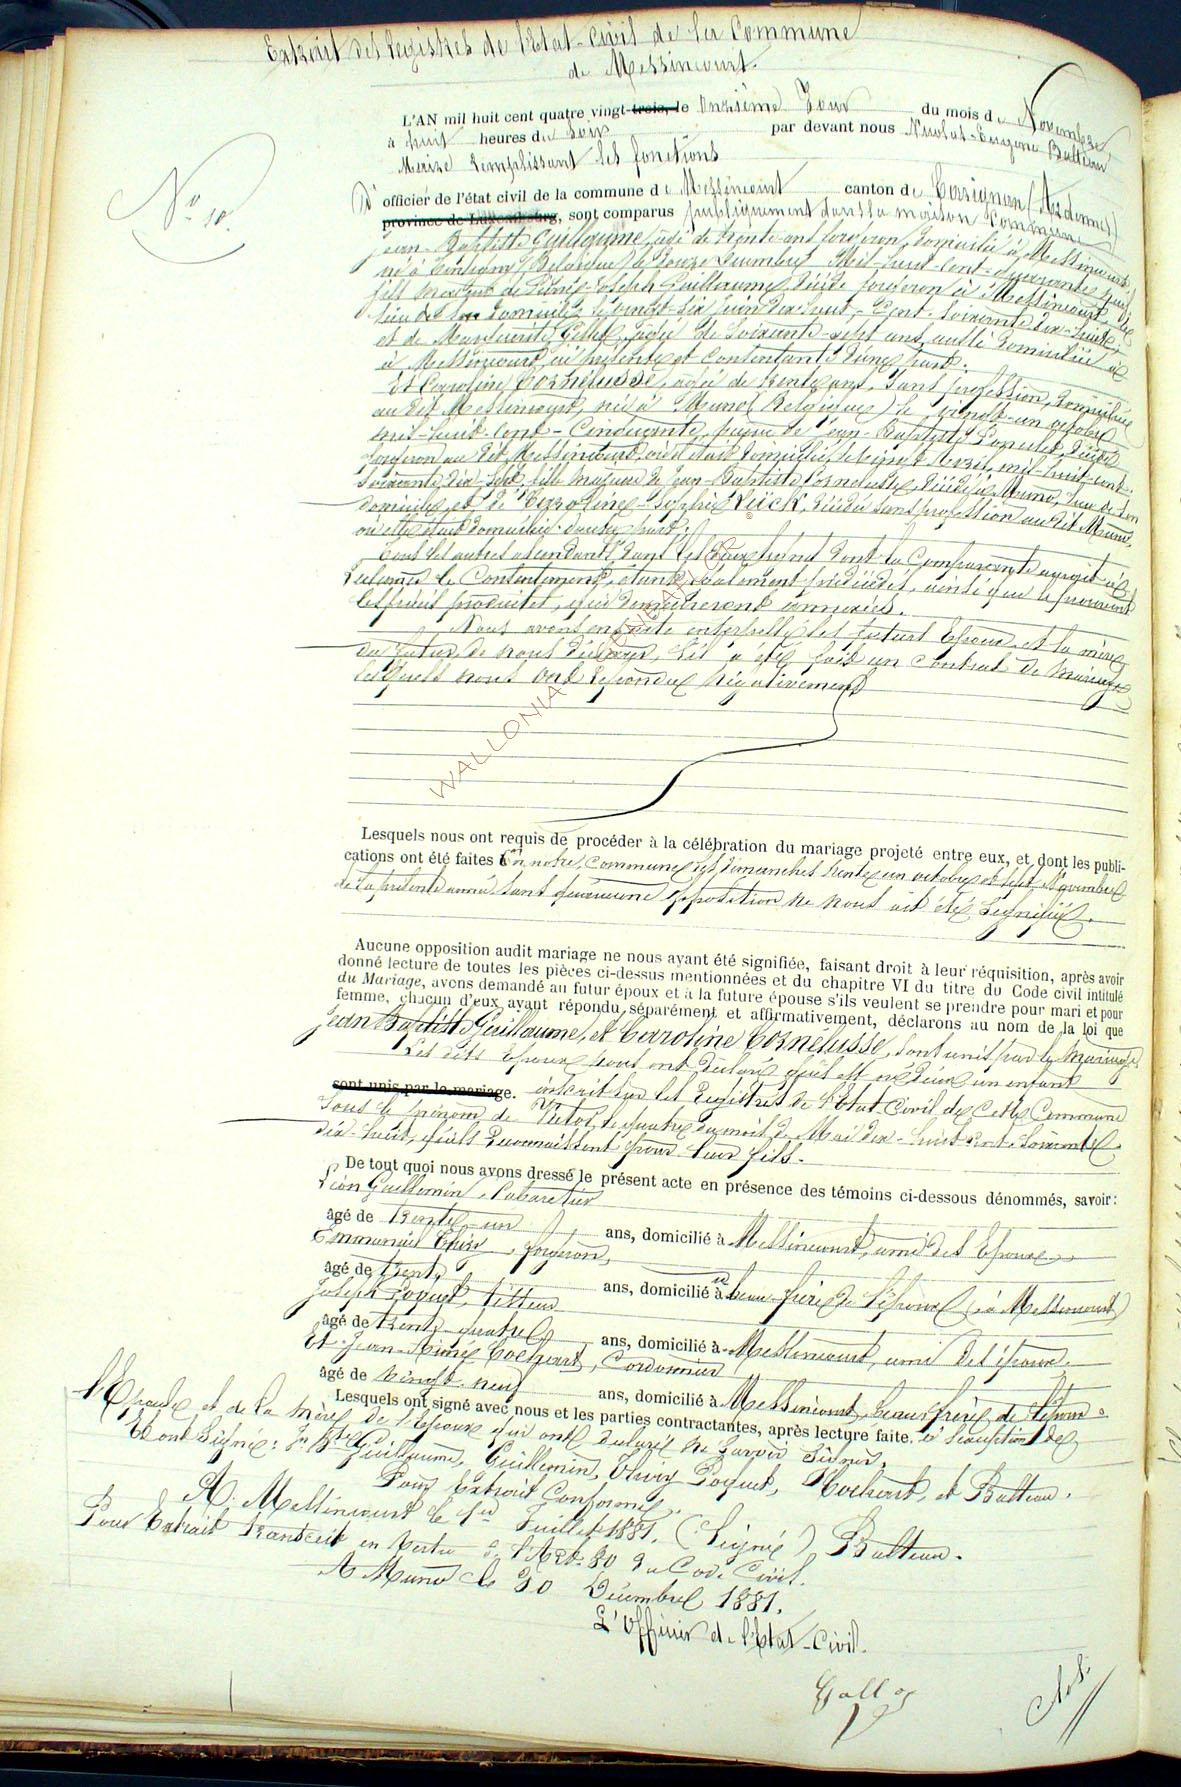 Extrait des Registres de l'Etat-Civil de la Commune
de Messincourt.
No 10.
L'AN mil huit cent quatre vingt-trois, le onzième Jour du mois de Novembre
à huit heures du Soir par devant nous Nicolas-Eugène Balteau
Maire remplissant les fonctions
D' officier de l'état civil de la commune de Messincourt canton de Carignan (Ardennes)
province de Luxembourg, sont comparus publiquement dans la maison Commune
Jean-Baptiste Guillaume, âgé de trente ans forgeron, domicilié à Messincourt,
né à (Belgique) le douze Décembre Mil-huit-cent-quarante
fils majeur de Joseph Guillaume, décédé forgeron à Messincourt
lieu de son domicile, le vingt-six juin dix-huit-Cent-Soixante dix-huit,
et de Marguerite âgée de soixante-sept ans, aussi domiciliée
à Messincourt, ici présente et Consentante d'une part.
Et Caroline Cornélusse, agée de trente ans, sans profession, domiciliée
au dit Messincourt, née à Muno (Belgique) le vingt-un octobre
mil-huit-Cent-Cinquante, veuve de Jean-Baptiste décédé
forgeron au dit Messincourt où il était domicilié, le mil-huit-cent-
soixante dix-sept, fille majeure de Jean-Baptiste Cornélusse, décédé à Muno, lieu de son
domicile, et de Caroline-Sophie Lück, décédée sans profession au dit Muno,
où elle était domiciliée d'autre part.
Tous les autres ascendants dont la Comparante aurait à
le Consentement, étant également prédécédés, ainsi que le prouvent
les pièces produites, qui demeureront annexées.
Nous avons ensuite interpellé les futurs Epoux, et la mère
du futur de nous déclarer, s'il a été fait un Contrat de mariage
lesquels nous ont répondu négativement
Lesquels nous ont requis de procéder à la célébration du mariage projeté entre eux, et dont les publi-
cations ont été faites En notre Commune les dimanches trente un octobre et sept Novembre
de la présente année sans qu'aucune opposition ne nous ait été signifiée.
Aucune opposition audit mariage ne nous ayant été signifiée, faisant droit à leur réquisition, après avoir
donné lecture de toutes les pièces ci-dessus mentionnées et du chapitre VI du titre du Code civil intitulé
du Mariage, avons demandé au futur époux et à la future épouse s'ils veulent se prendre pour mari et pour
femme, chacun d'eux ayant répondu séparément et affirmativement, déclarons au nom de la loi que
Jean Baptiste Guillaume, et Caroline Cornélusse, sont unis par le mariage.
Les dits Epoux nous ont déclaré qu'il est né d'eux un enfant
sont unis par le mariage. inscrit sur les Registres de l'Etat Civil de Cette Commune
Sous le prénom de Victor, le quatre du mois de Mai dix-huit-Cent-Soixante
dix-huit, qu'ils reconnaissent pour leur fils.
De tout quoi nous avons dressé le présent acte en présence des témoins ci-dessous dénommés, savoir:
Léon Guillemin, Cabaretier
âgé de trente-un ans, domicilié à Messincourt, ami des Epoux
Emmanuel Thiry, forgeron,
âgé de trente ans, domicilié à beau-frère de l'époux (à Messincourt)
Joseph Poquet, tisseur
âgé de trente-quatre ans, domicilié à Messincourt, ami des époux.
Et Jean-Aimé Cordonnier
âgé de vingt-neuf ans, domicilié à Messincourt, beau-frère de l'époux.
Lesquels ont signé avec nous et les parties contractantes, après lecture faite. à l'exception de
l'Epouse et de la mère de l'époux qui ont déclaré ne savoir signer.
Et ont Signé: Jn Bte Guillaume, Guillemin, Thiry Poquet, et Balteau.
Pour Extrait Conforme,
A Messincourt le 1er Juillet 1881. (Signé) Balteau.
Pour Extrait transcrit en vertu de l'Art. 80 du Code Civil.
A Muno le 30 Décembre 1881.
L'Officier de l'Etat-Civil.
WALLONIA